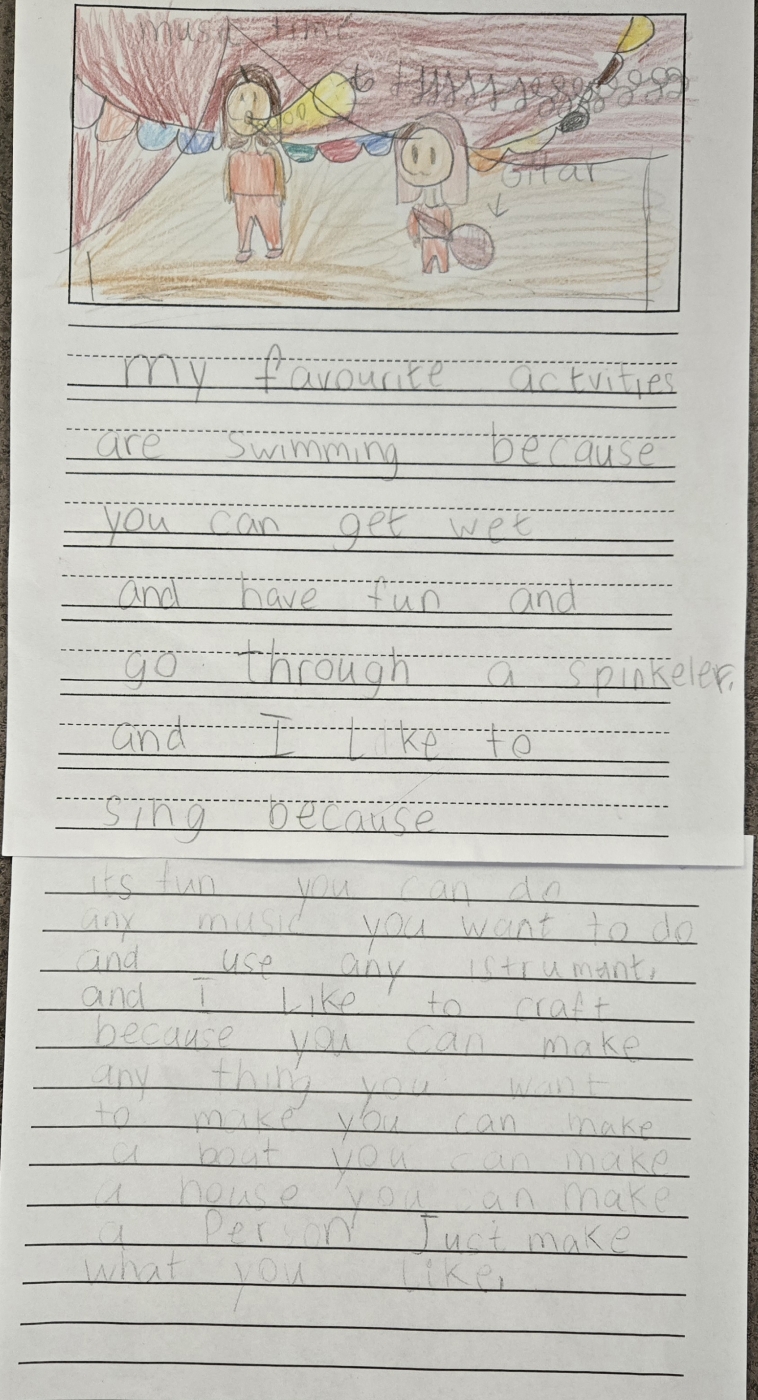 music time
Gitar
my favourite actvities
are swimming because
you can get wet
and have fun and
go through a spinkeler.
and I Like to
sing because
its fun you can do
any music you want to do
and use any istrumant.
and I Like to craft
because you can make
any thing you want
to make you can make
a boat you can make
a house you can make
a Person Just make
what you like.